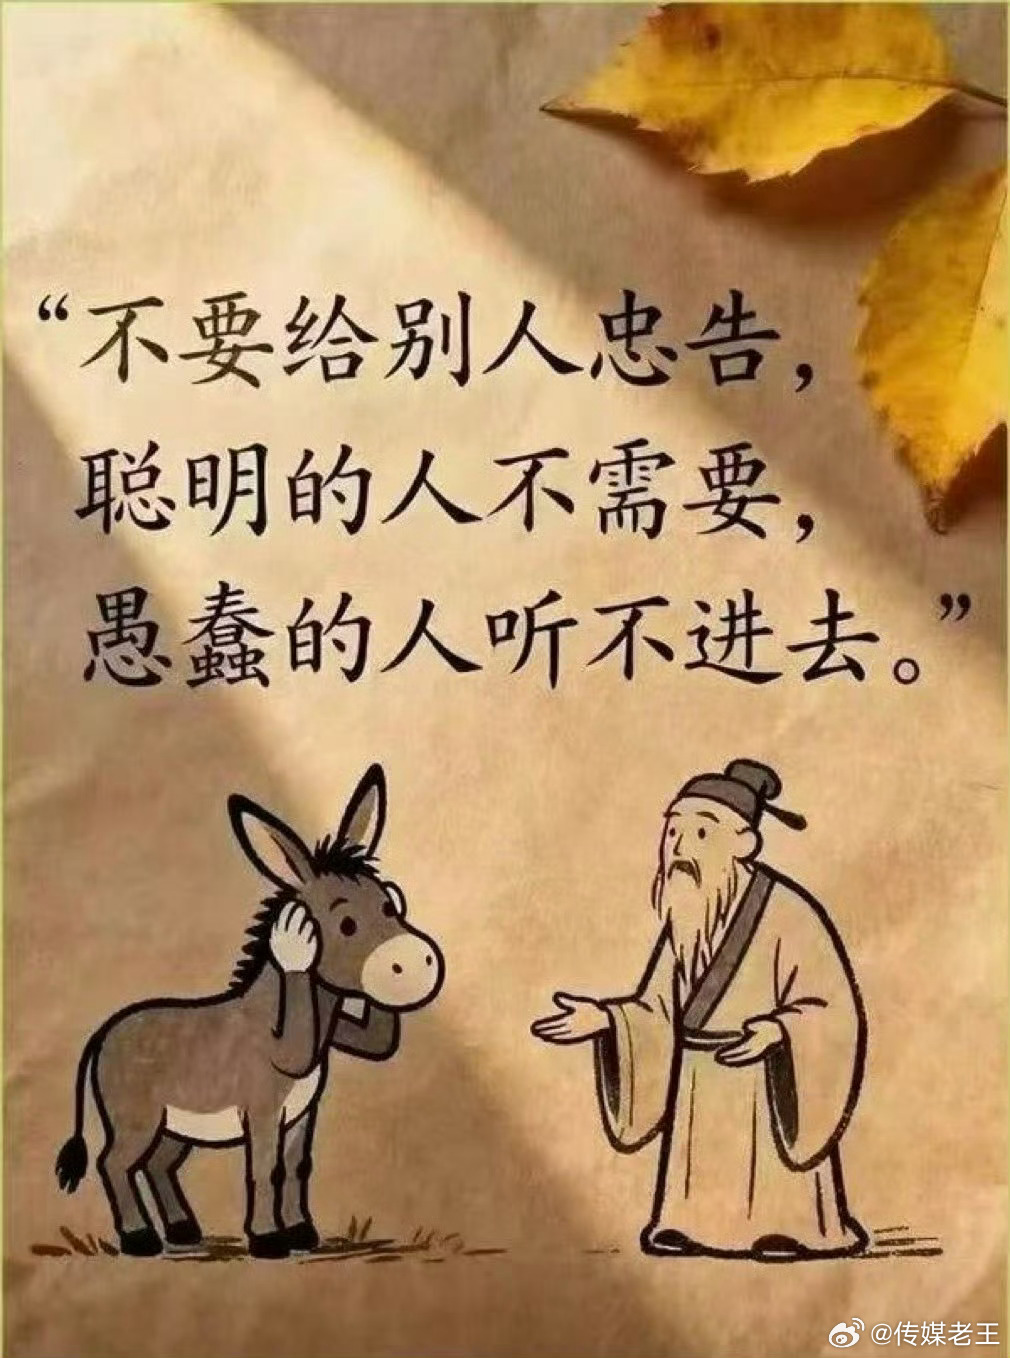 “不要给别人忠告，
聪明的人不需要，
愚蠢的人听不进去。”
@传媒老王